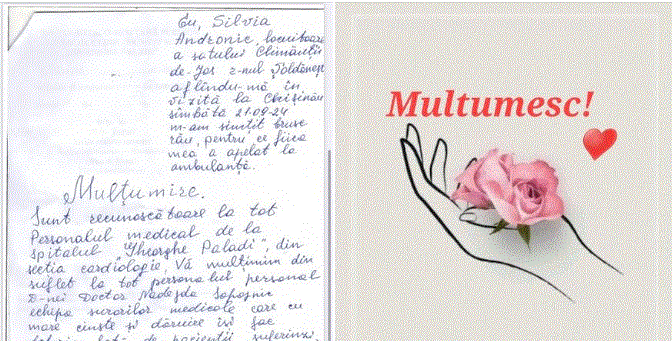 Eu, Silvia
Andronic, locuitoare
a satului Climăuții
de-Jos r-nul Șoldănești
aflîndu-mă în
vizită la Chișinău
sîmbătă 21.09.24
m-am simțit brusc
rău, pentru ce fiica
mea a apelat la
ambulanță.
Mulțumire.
Sunt recunoscătoare la tot
Personalul medical de la
spitalul "Gheorghe Paladi", din
secția cardiologie, Vă mulțumim din
suflet la tot personalul personal
D-nei Doctor Nadejda
echipa surorilor medicale care cu
mare cinste și dăruire își fac
de pacienții suferinzi,
Multumesc!